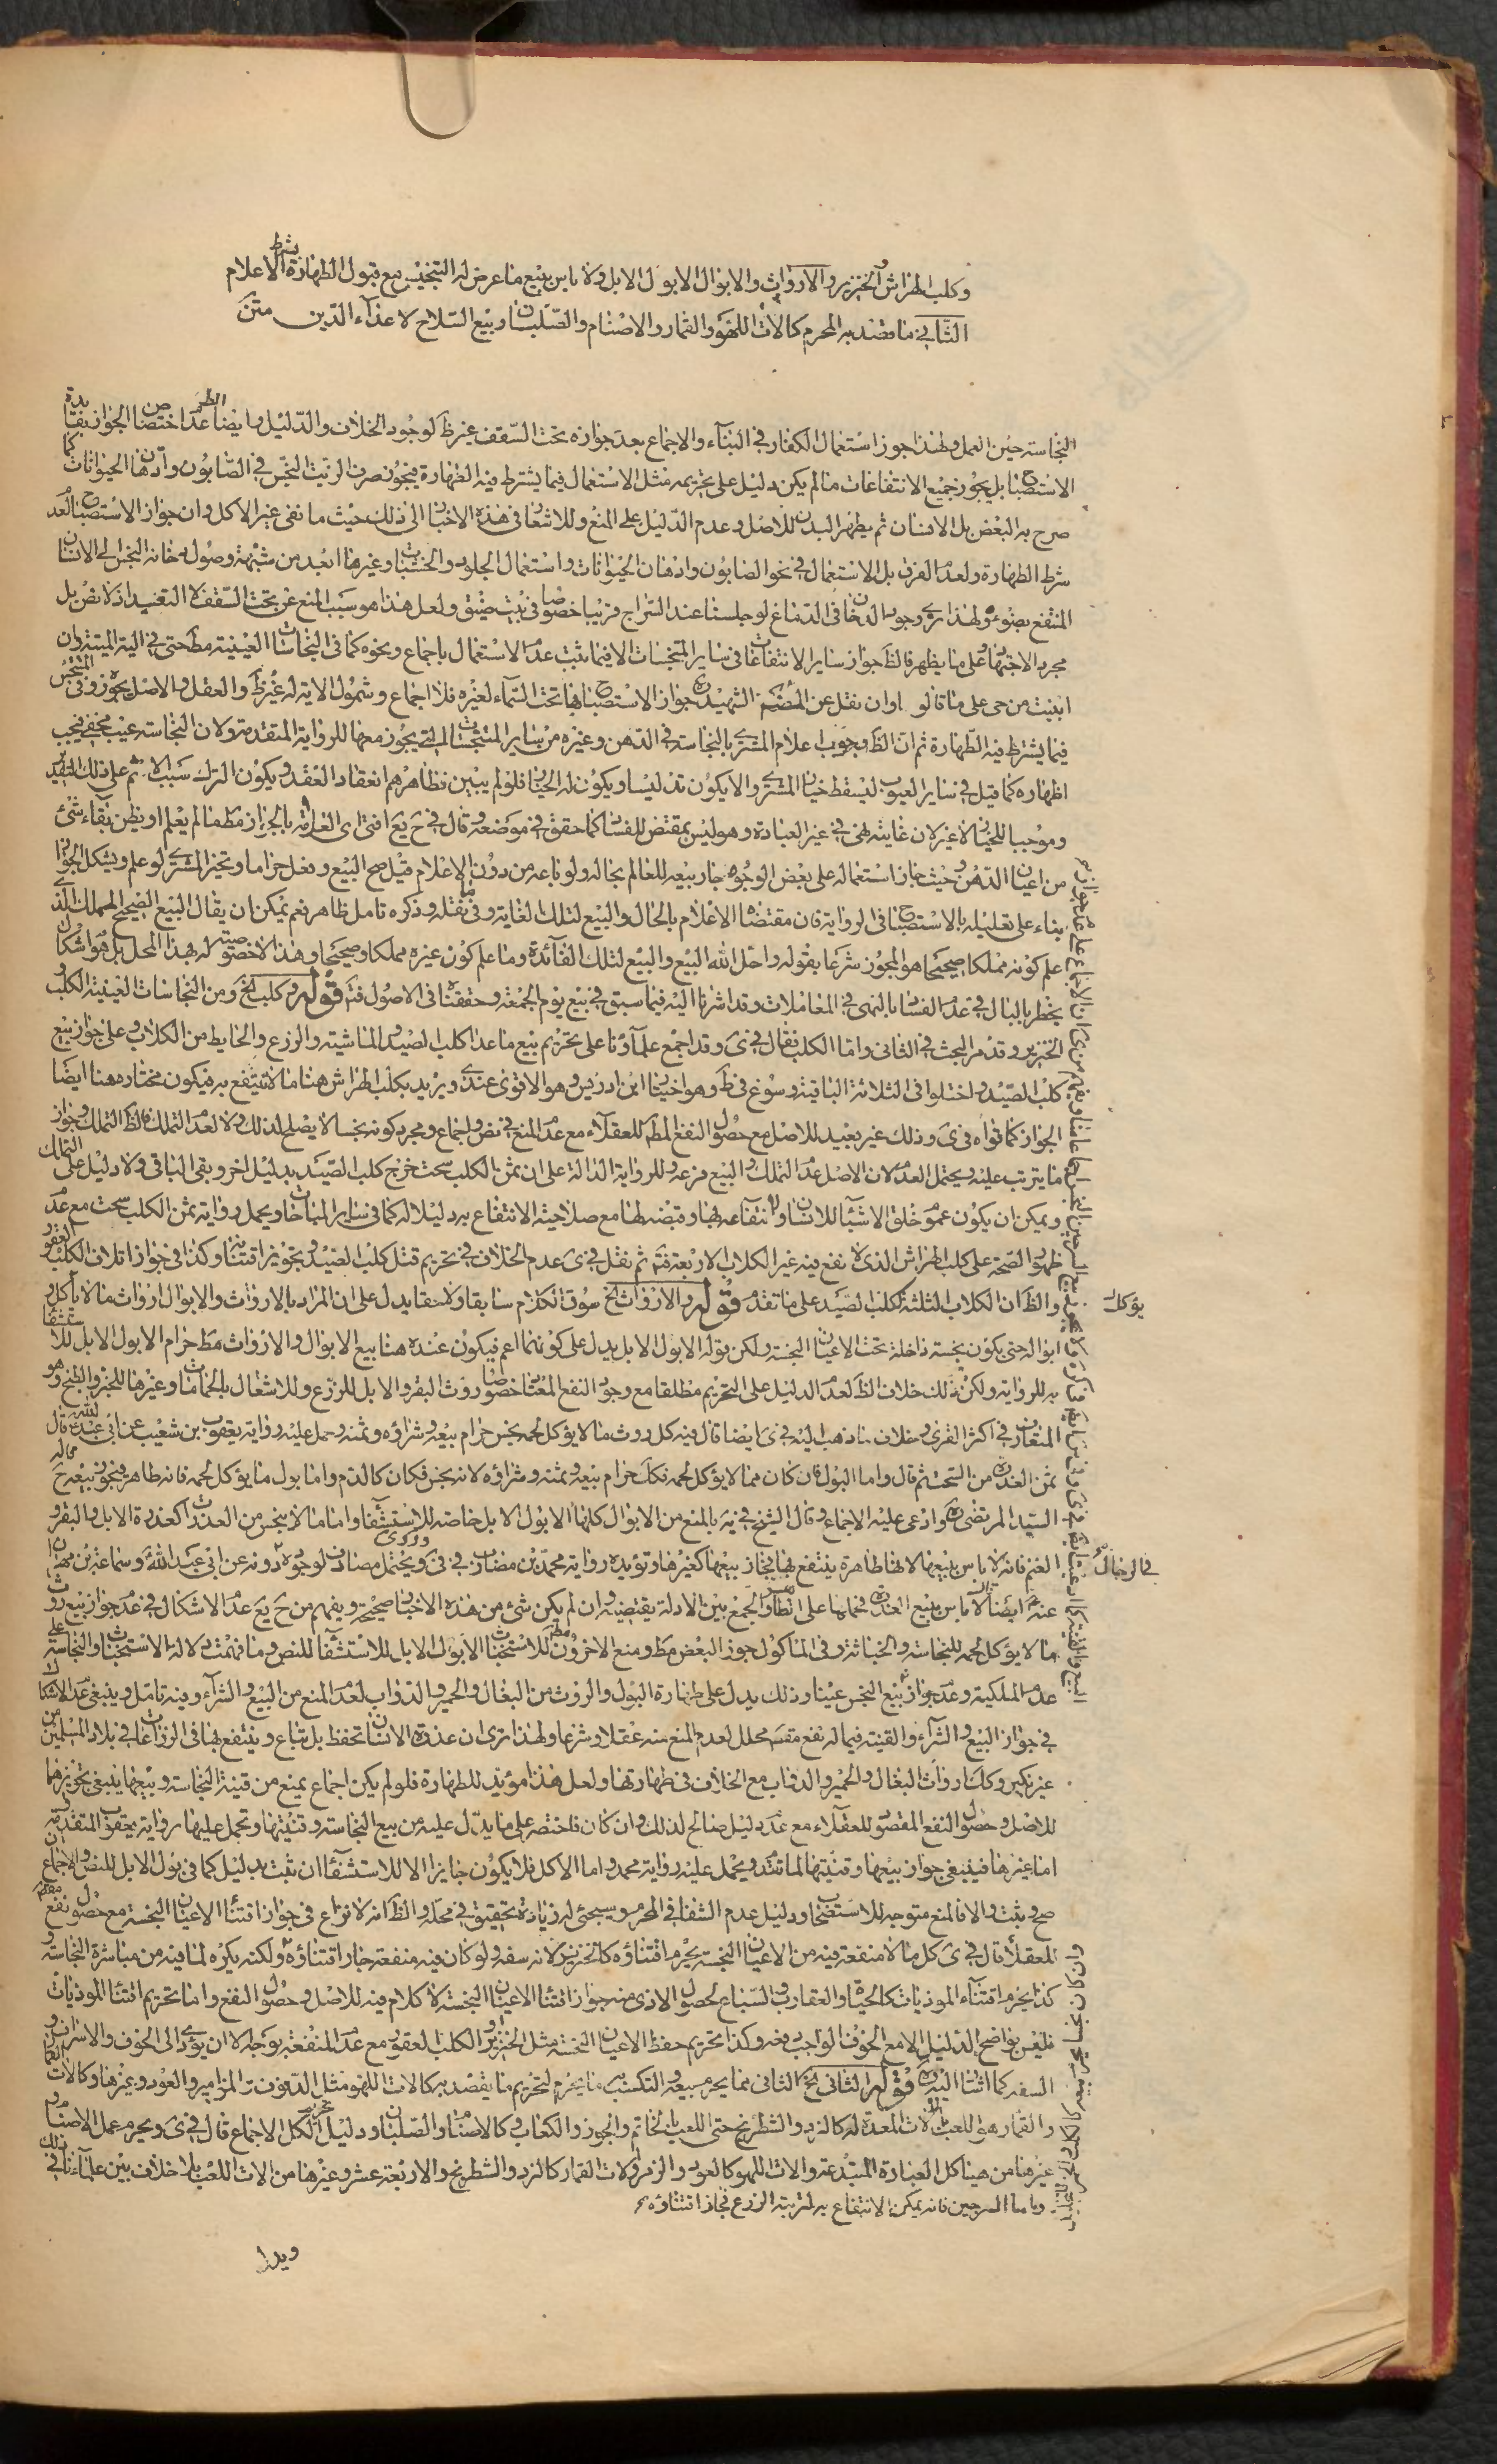 وكلب الهراش والخنزير والارواث والابوال الا بول الابل ولا باس ببيع ما عرض له التنجيس مع قبول الطهارة بشرط الاعلام
الثاني ما قصد به المحرم كالات اللهو والقمار والاصنام والصلبان وبيع السلاح لاعداء الدين متن
النجاسة حين العمل ولهذا جوز استعمال الكفار في البناء والاجماع بعد جوازه تحت السقف غير ظ لوجود الخلاف والدليل وايضا الظ عدم اختصاص الجواز بفايدة
الاستصباح بل يجوز جميع الانتفاعات ما لم يكن دليل على تحريمه مثل الاستعمال فيما يشترط فيه الطهارة فيجوز صرف الزيت النجس في الصابون وادهان الحيوانات كما
صرح به البعض بل الانسان ثم يطهر البدن للاصل وعدم الدليل على المنع وللاشعار في هذه الاخبار الى ذلك حيث ما نفى غير الاكل وان جواز الاستصباح لعدم
شرط الطهارة ولعدم الفرق بل الاستعمال في نحو الصابون وادهان الحيوانات واستعمال الجلود والخشبات وغيرها ابعد من شبهة وصول دخانه النجس الى الانسان
المنتفع بضوءه ولهذا نرى وجود الدخان في الدماغ لو جلسنا عند السراج قريبا خصوصا في بيت ضيق ولعل هذا هو سبب المنع عن تحت السقف لا التعبد اذ لا نص بل
مجرد الاجتهاد على ما يظهر فالظ جواز ساير الانتفاعات في ساير المتنجسات الا فيما يثبت عدم الاستعمال باجماع ونحوه كما في النجاسات العينية مط حتى في الية الميتة وان
ابينت من حى على ما قالو اوان نقل عن الشهيد ره جواز الاستصباح بها تحت السماء لغيره فلا اجماع وشمول الاية له غير ظ والعقل والاصل يجوزه وفى المتنجس
فيما يشترط فيه الطهارة ثم ان الظ وجوب اعلام المشترى بالنجاسة في الدهن وغيره من ساير المتنجسات التي يجوز معها للرواية المتقدمة ولان النجاسة عيب مخفي فيجب
اظهاره كما قيل في ساير العيوب ليسقط خيار المشترى والا يكون تدليسا ويكون له الخيار فلو لم يبين فظاهرهم انعقاد العقد ويكون الترك سببا للاثم على ذلك التقدير
وموجبا للخيار لا غير لان غايته نهى في غير العبادة وهو ليس بمقتض للفساد كما حقق في موضعه وقال في ح يع افتى العلامة بالجواز مطلقا ما لم يعلم او يظن بقاء شئ
من اعيان الدهن وحيث جاز استعماله على بعض الوجوه جاز بيعه للعالم بحاله ولو باعه من دون الاعلام قيل صح البيع وفعل حراما وتخير المشترى لو علم ويشكل الجواز
بناء على تعليله بالاستصباح في الرواية فان مقتضاه الاعلام بالحال والبيع لتلك الغاية وفى نقله وذكره تامل ظاهر نعم يمكن ان يقال البيع الصحيح المملك الذى
علم كونه مملكا صحيحا هو المجوز شرعا بقوله واحل الله البيع والبيع لتلك الفائدة وما علم كون غيره مملكا وصحيحا وهذا لا خصوصية له بهذا المحل بل هو اشكال
يخطر بالبال في عدم الفساد بالنهى في المعاملات وقد اشرنا اليه فيما سبق في بيع يوم الجمعة وحققناه في الاصول فتم قوله وكلب الخ ومن النجاسات العينية الكلب
الخنزير وقد مر البحث في الثانى واما الكلب فقال في ى وقد اجمع علماؤنا على تحريم بيع ما عدا كلب الصيد والماشية والزرع والحايط من الكلاب وعلى جواز بيع
كلب الصيد واختلوا في الثلاثة الباقية وسوغ في ط وهو اختيار ابن ادريس وهو الاقوى عندى ويريد بكلب الهراش هنا ما لا ينتفع به فيكون مختاره هنا ايضا
الجواز كما قواه في ى وذلك غير بعيد للاصل مع حصول النفع المط للعقلاء مع عدم المنع في نص واجماع ومجرد كونه نجسا لا يصلح لذلك ولا لعدم التملك فالظ التملك وجواز
ما يترتب عليه ويحتمل العدم لان الاصل عدم التملك والبيع فرعه وللرواية الدالة على ان ثمن الكلب سحت خرج كلب الصيد بدليل اخر وبقى الباقى ولا دليل على التملك
ويمكن ان يكون عموم خلق الاشياء للانسان ولانتفاعه بها وقبضه لها مع صلاحية الانتفاع به دليلا له كما في ساير المباحات ويحمل رواية ثمن الكلب سحت مع عدم
ظهور الصحة على كلب الهراش الذى لا نفع فيه غير الكلاب الاربعة فتم ثم نقل في ى عدم الخلاف في تحريم قتل كلب الصيد وتجويز اقتنائه وكذا في جواز اتلاف الكلب العقور
والظ ان الكلاب الثلثة ككلب الصيد على ما تقدم قوله والارواث الخ سوق الكلام سابقا ولاحقا يدل على ان المراد بالارواث والابوال ارواث ما لا ياكل و
يؤكل
ابواله حتى يكون نجسة داخلة تحت الاعيان النجسة ولكن قوله الا بول الابل يدل على كونهما اعم فيكون عنده هنا بيع الابوال والارواث مط حرام الا بول الابل للاستشفاء
به للرواية ولكن ذلك خلاف الظ لعدم الدليل على التحريم مطلقا مع وجود النفع خصوصا روث البقر والابل للزرع وللاشعال بالحمامات وغيرها للخبز والطبخ وهو
المتعارف في اكثر القرى وخلاف ما ذهب اليه في ى ايضا قال فيه كل روث ما لا يؤكل لحمه نجس حرام بيعه وشراؤه وثمنه وحمل عليه رواية يعقوب بن شعيب عن ابى عبد الله ع قال
ثمن العذرة من السحت ثم قال واما البول فان كان مما لا يؤكل لحمه فكك حرام بيعه وثمنه وشراؤه لانه نجس فكان كالدم واما بول ما يؤكل لحمه فانه طاهر فيجوز بيعه ح قاله
السيد المرتضى ره وادعى عليه الاجماع وقال الشيخ في يه بالمنع من الابوال كلها الا بول الابل خاصة للاستشفاء واما ما لا ينجس من العذرات كعذرة الابل والبقر و
الغنم فانه لا باس ببيعها لانها طاهرة ينتفع بها فجاز بيعها كغيرها وتؤيده رواية محمد بن مضارب عن ابى عبد الله
عنه ايضا لا باس ببيع العذرة فحملها على الطاهر والجمع بين الادلة يقتضيه وان لم يكن شئ من هذه الاخبار صحيح ويفهم من ح يع عدم الاشكال في عدم جواز بيع روث
ما لا يؤكل لحمه للنجاسة والخباثة وفى الماكول جوز البعض مط ومنع الاخرون مط للاستخباث الا بول الابل للاستشفاء للنص وما فهمت دلالة الاستخباث والنجاسة على
عدم الملكية وعدم جواز بيع النجس عينا وذلك يدل على طهارة البول والروث من البغال والحمير والدواب لعدم المنع من البيع والشراء وفيه تامل وينبغى عدم الاشكال
في جواز البيع والشراء والقنية فيما له نفع مقصود محلل لعدم المنع منه عقلا وشرعا ولهذا ترى ان عذرة الانسان تحفظ بل تباع وينتفع بها في الزراعات في بلاد المسلمين من
غير نكير وكك ارواث البغال والحمير والدواب مع الخلاف في طهارتها ولعل هذا مؤيد للطهارة فلو لم يكن اجماع يمنع من قنية النجاسة وبيعها ينبغى تجويزها
للاصل وحصول النفع المقصود للعقلاء مع عدم دليل صالح لذلك وان كان فاختصه على ما يدل عليه من بيع النجاسة وقنيتها وتحمل عليها رواية يعقوب المتقدمة
اما غيرها فينبغى جواز بيعها وقنيتها لما تقدم ويحمل عليه رواية محمد واما الاكل فلا يكون جايزا الا للاستشفاء ان ثبت بدليل كما في بول الابل للنص والاجماع ان
صح وثبت والا فالمنع متوجه للاستصحاب ودليل عدم الشفاء في المحرم وسيجئ له زيادة تحقيق في محله والظ انه لا نزاع في جواز اقتناء الاعيان النجسة مع حصول نفع
للعقلاء قال في ى كل ما لا منفعة فيه من الاعيان النجسة يحرم اقتناؤه كالخنزير لانه سفه ولو كان فيه منفعة جاز اقتناؤه ولكنه يكره لما فيه من مباشرة النجاسة و
كذا يحرم اقتناء الموذيات كالحيات والعقارب والسباع لحصول الاذى منه جواز اقتناء الاعيان النجسة لا كلام فيه للاصل وحصول النفع واما تحريم اقتناء الموذيات
فليس بواضح الدليل الا مع الخوف الواجب دفعه وكذا تحريم حفظ الاعيان النجسة مثل الخنزير والكلب العقور مع عدم المنفعة بوجه الا ان يؤدى الى الخوف والاسراف و
السفه كما اشرنا اليه قوله الثانى الخ الثانى مما يحرم بيعه والتكسب به ما يحرم لتحريم ما يقصد به كالات اللهو مثل الدفوف والمزامير والعود وغيرها وكالات القمار
والقمار هو اللعب بالالات المعدة له كالنرد والشطرنج حتى اللعب بالخاتم والجوز والكعاب وكالاصنام والصلبان ودليل الكل الاجماع قال في ى ويحرم عمل الاصنام و
غيرها من هياكل العبادة المبتدعة والات اللهو كالعود والزمر والات القمار كالنرد والشطرنج والاربعة عشر وغيرها من الات اللعب بلا خلاف بين علمائنا في ذلك
واما السرجين فانه يمكن الانتفاع به لتربية الزرع فجاز اقتناؤه
ويدل